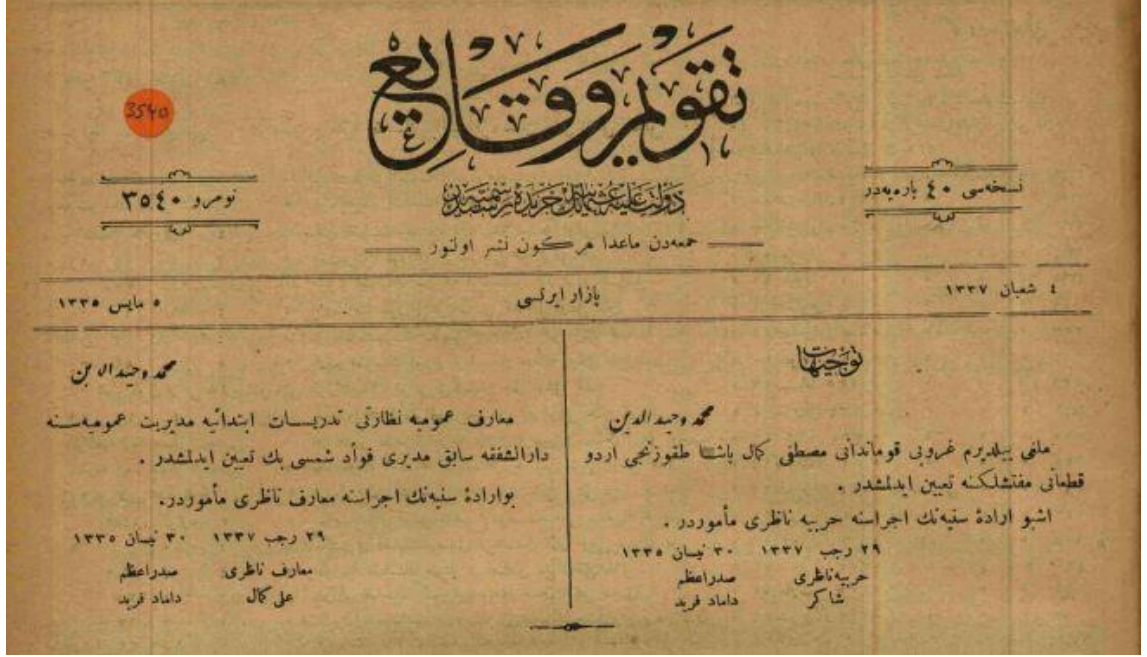 3540
تقويم وقايع
نسخه‌سی ٤٠ پاره‌يه‌در
نومرو ٣٥٤٠
دولت عليه عثمانيه‌نك جريدهٔ رسميه‌سيدر
جمعه‌دن ماعدا هركون نشر اولنور
٤ شعبان ١٣٣٧
پازار ايرتسی
٥ مايس ١٣٣٥
توجيهات
محمد وحيد الدين
ملغی ييلديرم غروپی قوماندانی مصطفی كمال پاشا طقوزنجی اردو
قطعاتی مفتشلكنه تعيين ايدلمشدر .
اشبو ارادهٔ سنيه‌نك اجراسنه حربيه ناظری مأموردر .
٢٩ رجب ١٣٣٧ ٣٠ نيسان ١٣٣٥
حربيه‌ناظری صدراعظم
شاكر داماد فريد
محمد وحيد الدين
معارف عموميه نظارتی تدريسات ابتدائيه مديريت عموميه‌سنه
دارالشفقه سابق مديری فوأد شمسی بك تعيين ايدلمشدر .
بوارادهٔ سنيه‌نك اجراسنه معارف ناظری مأموردر.
٢٩ رجب ١٣٣٧ ٣٠ نيسان ١٣٣٥
معارف ناظری صدراعظم
علی كمال داماد فريد